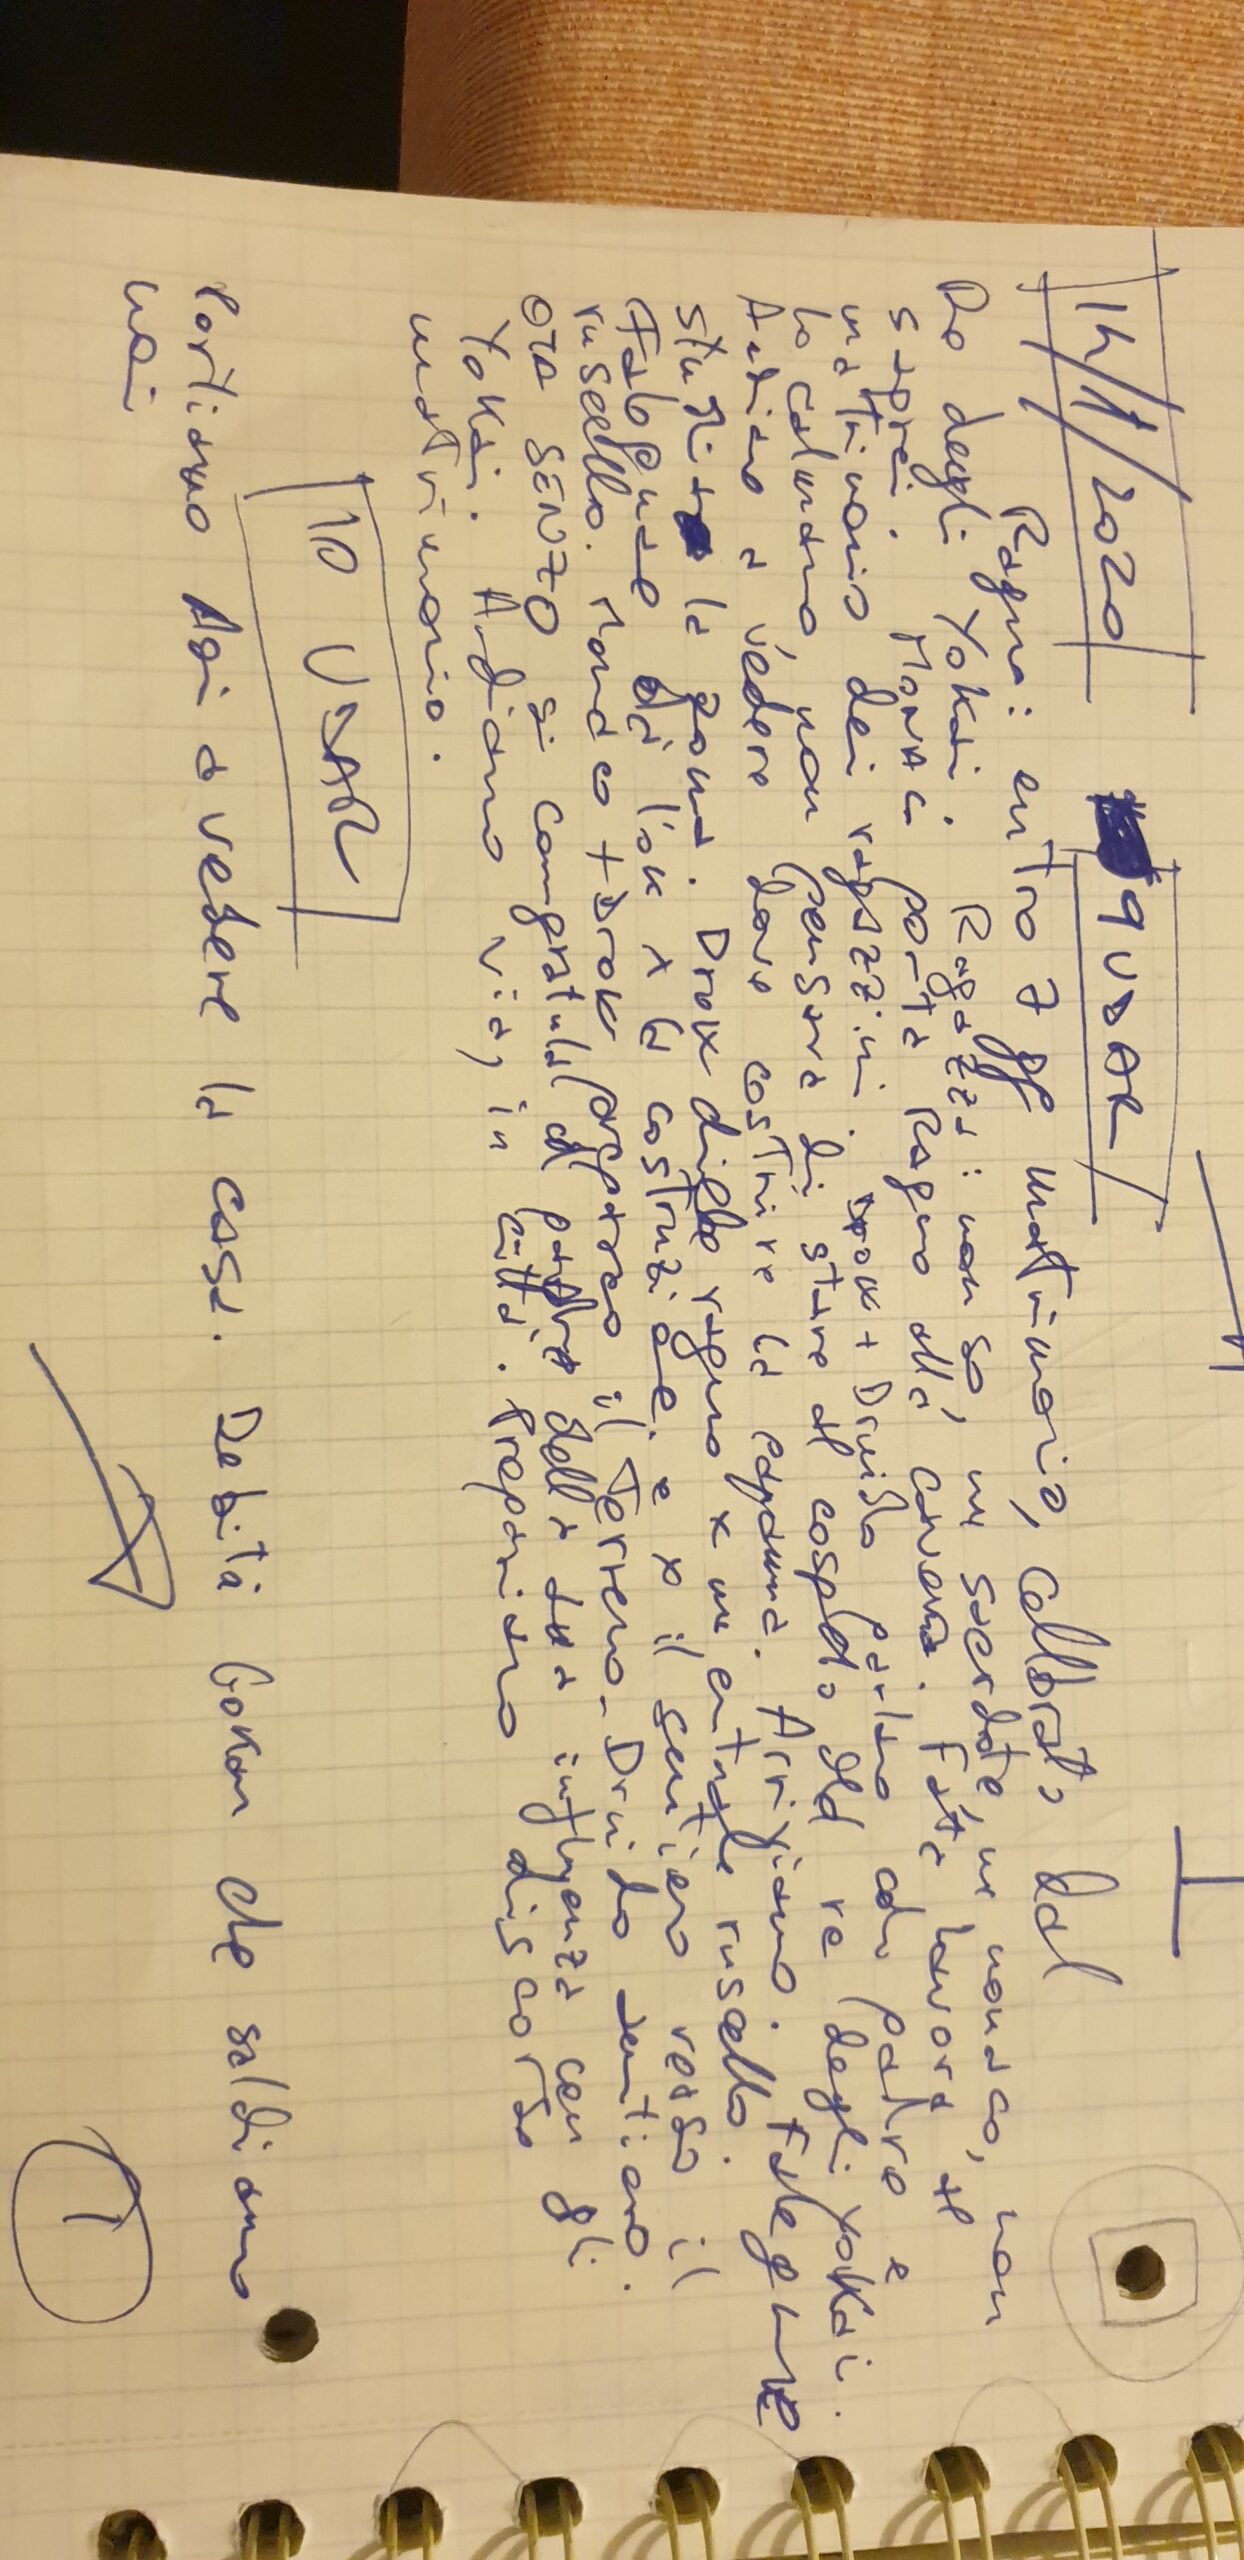 14/1/2020 9 USAR
Ragni: entro 7 gg matrimonio, celebrato dal
Re degli Yokai. Ragazzi: non so, un sacerdote, un monaco, non
saprei. MONACi porta Ragno alla caverna. Fata lavora al
matrimonio dei ragazzini. Drow + Druido parlano col padre e
lo calmano, non pensava di stare al cospetto del re degli yokai.
Andiamo a vedere dove costruire la capanna. Arriviamo. Falegname
studia la zona. Drow dirige ragno x un entrale ruscello.
Falegname dà l'ok x la costruzione. e x il sentiero verso il
ruscello. Monaco + Drow preparano il Terreno. Druido sentiero.
OTA SENZO si congratula al padre della sua influenza con gli
Yokai. Andiamo via, in città. Prepariamo discorso
matrimonio.
10 USAR
Portiamo Aoi a vedere la casa. Debito Gokan che saldiamo
noi
1